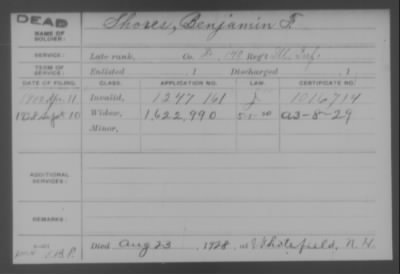 DEAD
NAME OF SOLDIER: Shores, Benjamin F.
SERVICE: Late rank, Co. D. 140 Reg't Ill. Inf.
TERM OF SERVICE: Enlisted , 1 Discharged , 1
DATE OF FILING. CLASS. APPLICATION NO. LAW. CERTIFICATE NO.
Apr. 11 Invalid, 1247 161 J 1016714
1928 Sept 10 Widow, 1,622,990 5-1-20 a3-8-29
Minor,
ADDITIONAL SERVICES:
REMARKS:
Died Aug 23, 1928, at Whitefield, N.H.